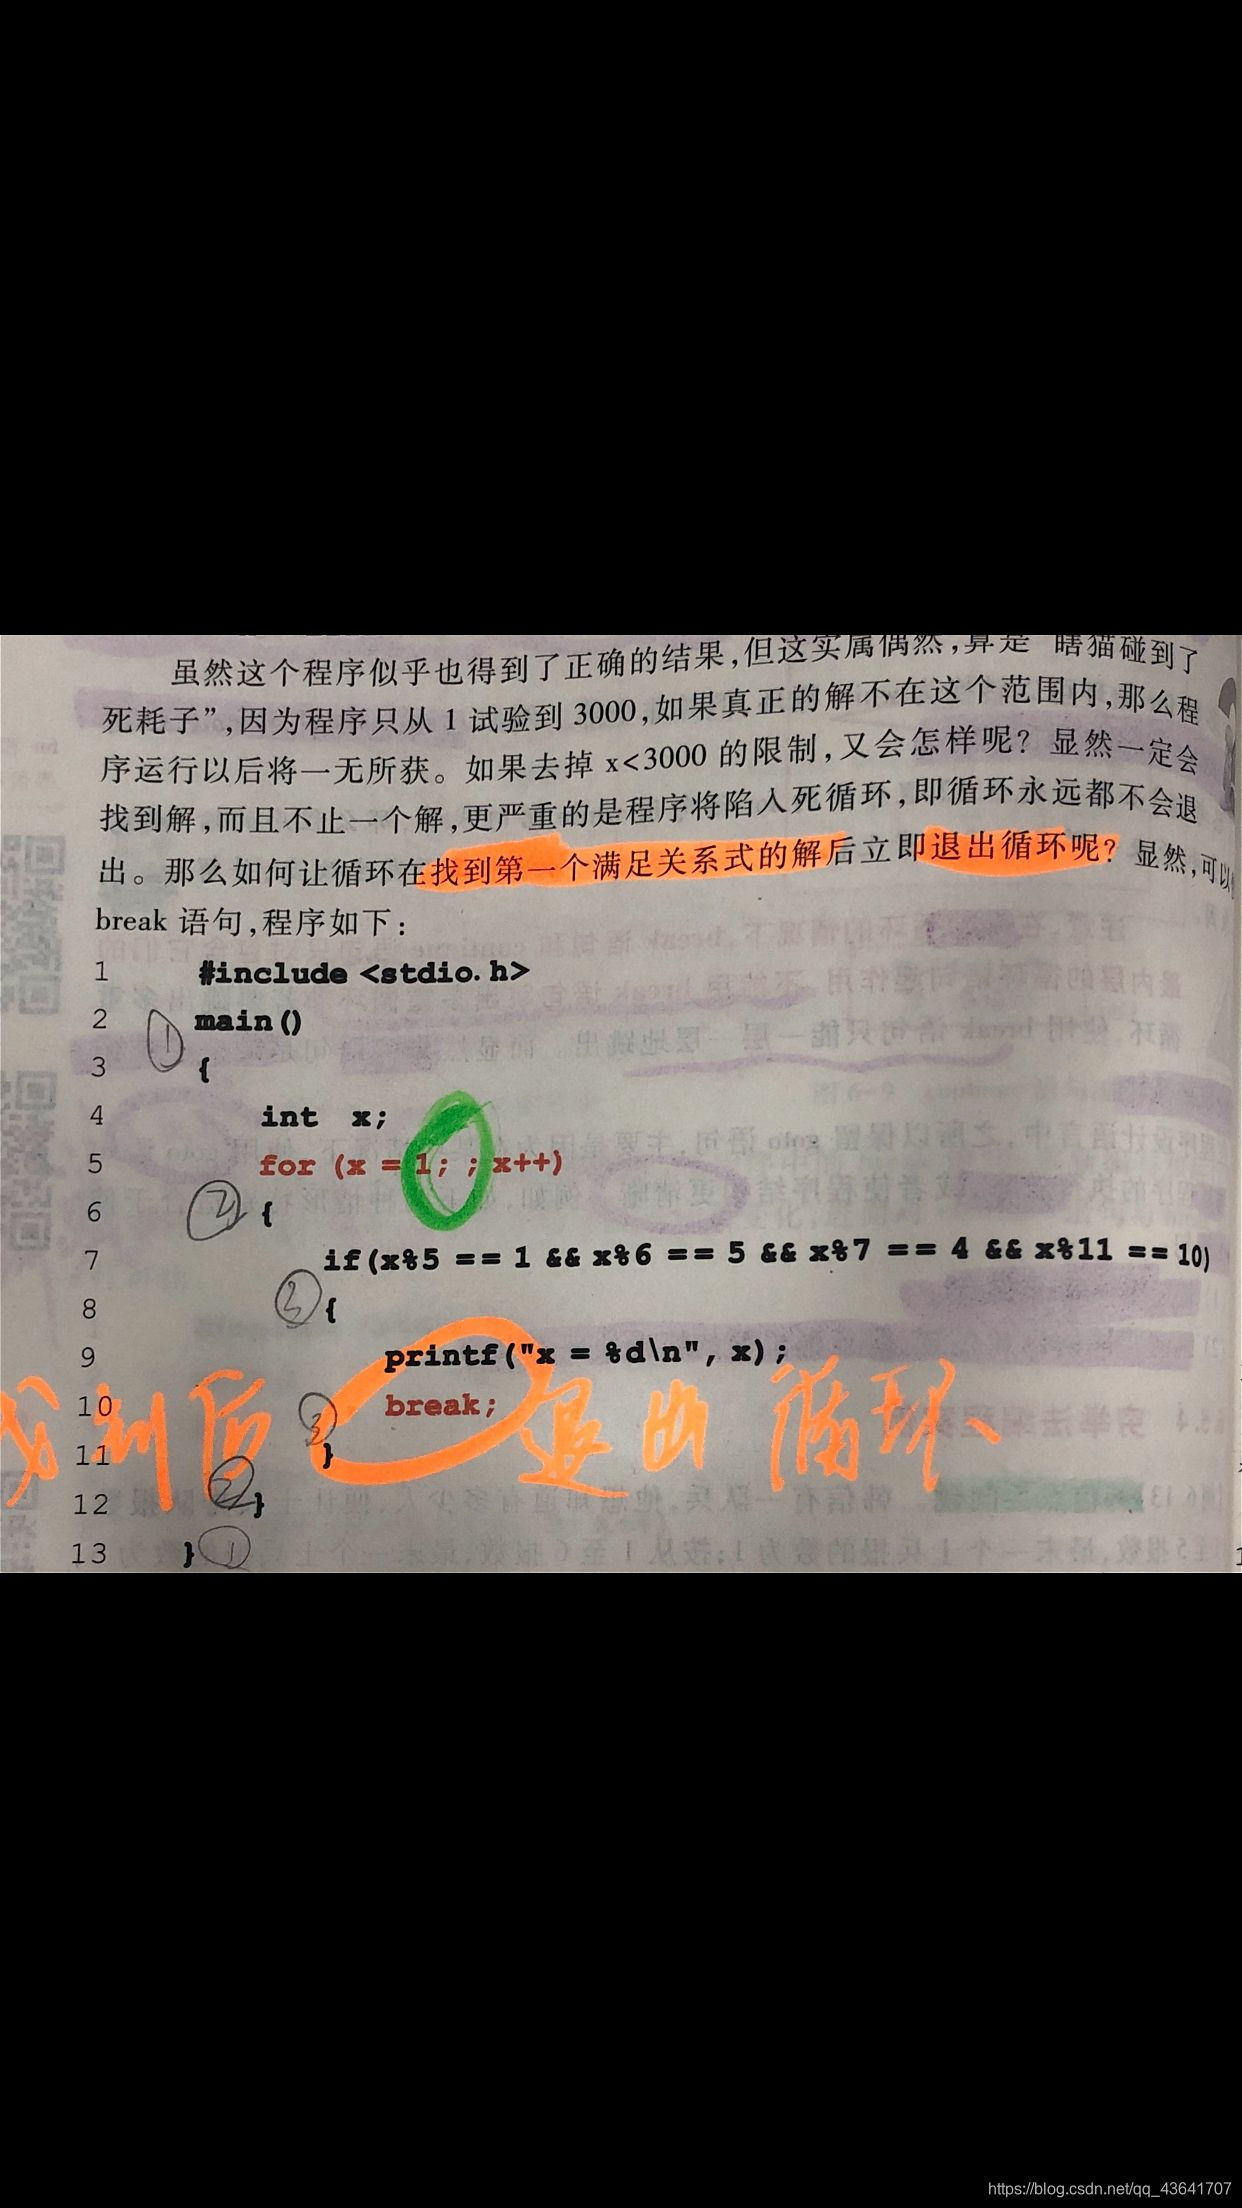 虽然这个程序似乎也得到了正确的结果,但这实属偶然,算是"瞎猫碰到了
死耗子”,因为程序只从1试验到3000,如果真正的解不在这个范围内,那么程
序运行以后将一无所获。如果去掉x<3000的限制,又会怎样呢? 显然一定会
找到解,而且不止一个解,更严重的是程序将陷入死循环,即循环永远都不会退
出。那么如何让循环在找到第一个满足关系式的解后立即退出循环呢? 显然,可以
break 语句,程序如下:
1 #include <stdio.h>
2 main()
① 
3 {
4 int x;
5 for (x = 1; ; x++)
6 ② {
7 if(x%5 == 1 && x%6 == 5 && x%7 == 4 && x%11 == 10)
8 ③ {
9 printf("x = %d\n", x);
10 break;
找到后 ③ 退出循环
11 }
12 ② }
13 } ①
https://blog.csdn.net/qq_43641707